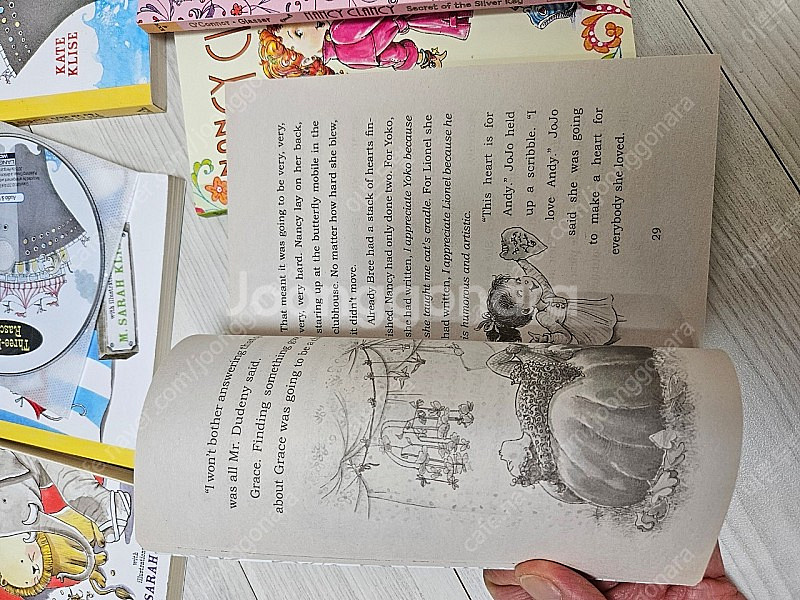 KATE
KLISE
O'Connor · Glasser
NANCY CLANCY
Secret of the Silver Key
NANCY C
with
M. SARAH KL
with
illustrations
SARAH
"I won't bother answering tha
was all Mr. Dudeny said.
Grace. Finding something
about Grace was going to be a
That meant it was going to be very, very,
very, very hard. Nancy lay on her back,
staring up at the butterfly mobile in the
clubhouse. No matter how hard she blew,
it didn't move.
Already Bree had a stack of hearts fin-
ished. Nancy had only done two. For Yoko,
she had written, I appreciate Yoko because
she taught me cat's cradle. For Lionel she
had written, I appreciate Lionel because he
is humorous and artistic.
"This heart is for
Andy." JoJo held
up a scribble. "I
love Andy." JoJo
said she was going
to make a heart for
everybody she loved.
29
Joonggonara